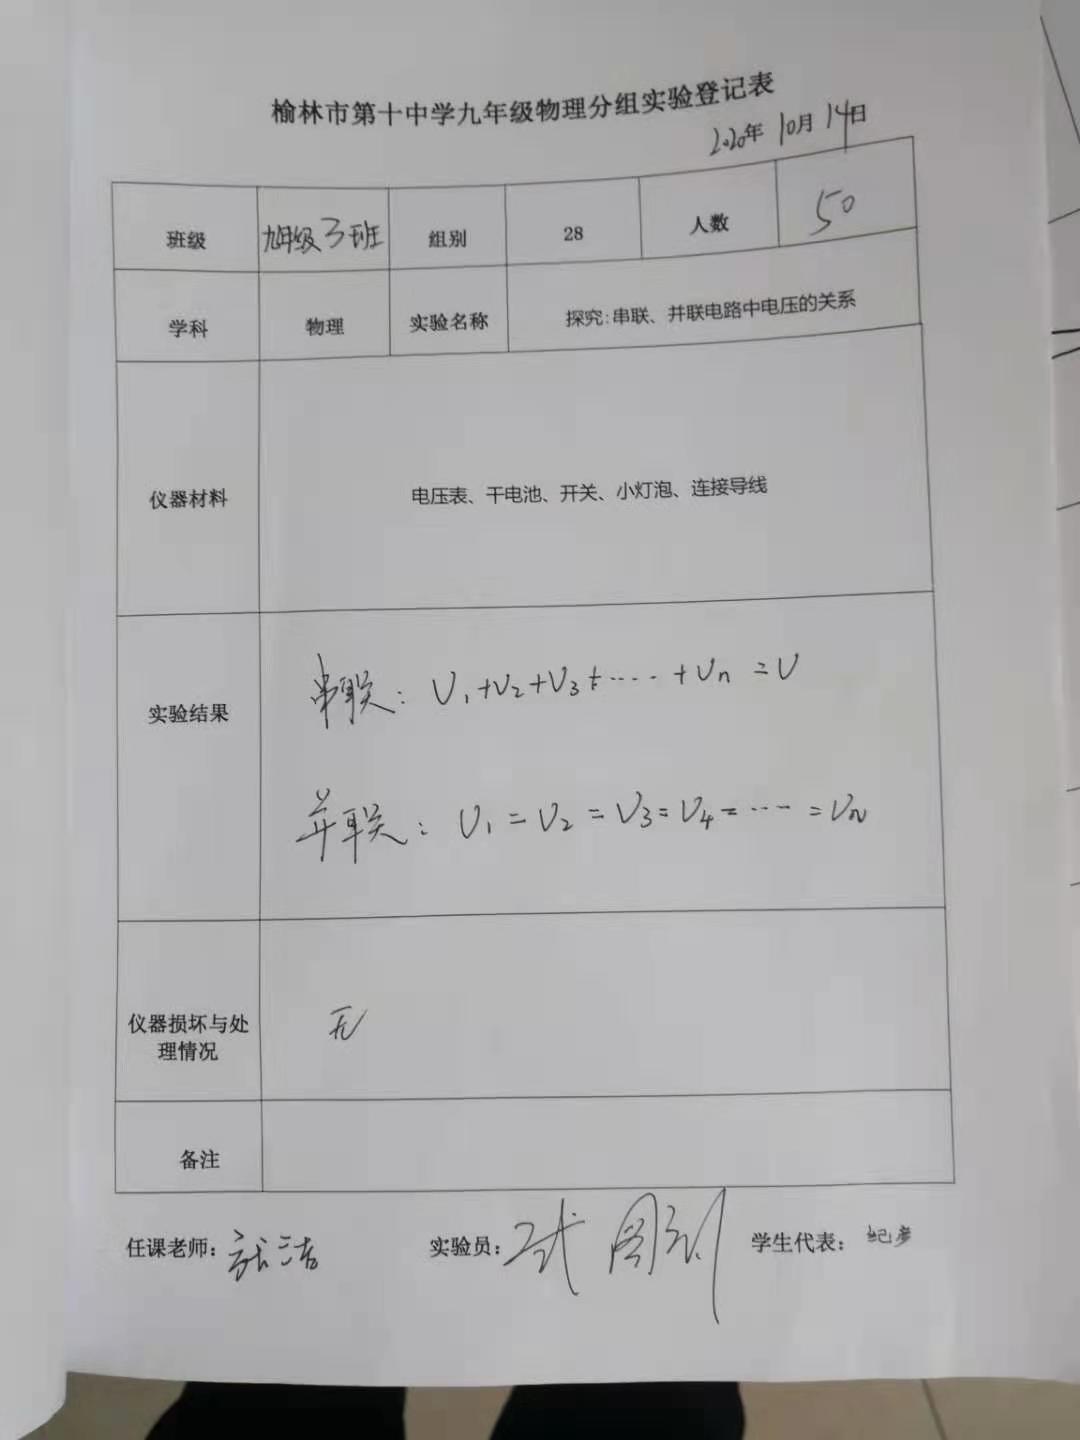 榆林市第十中学九年级物理分组实验登记表
2020年 10月 14日
班级 九年级3班 组别 28 人数 50
学科 物理 实验名称 探究:串联、并联电路中电压的关系
仪器材料 电压表、干电池、开关、小灯泡、连接导线
实验结果 串联: U₁+U₂+U₃+……+Un=U
并联: U₁=U₂=U₃=U₄=……=Un
仪器损坏与处
理情况
无
备注
任课老师: 实验员: 学生代表: